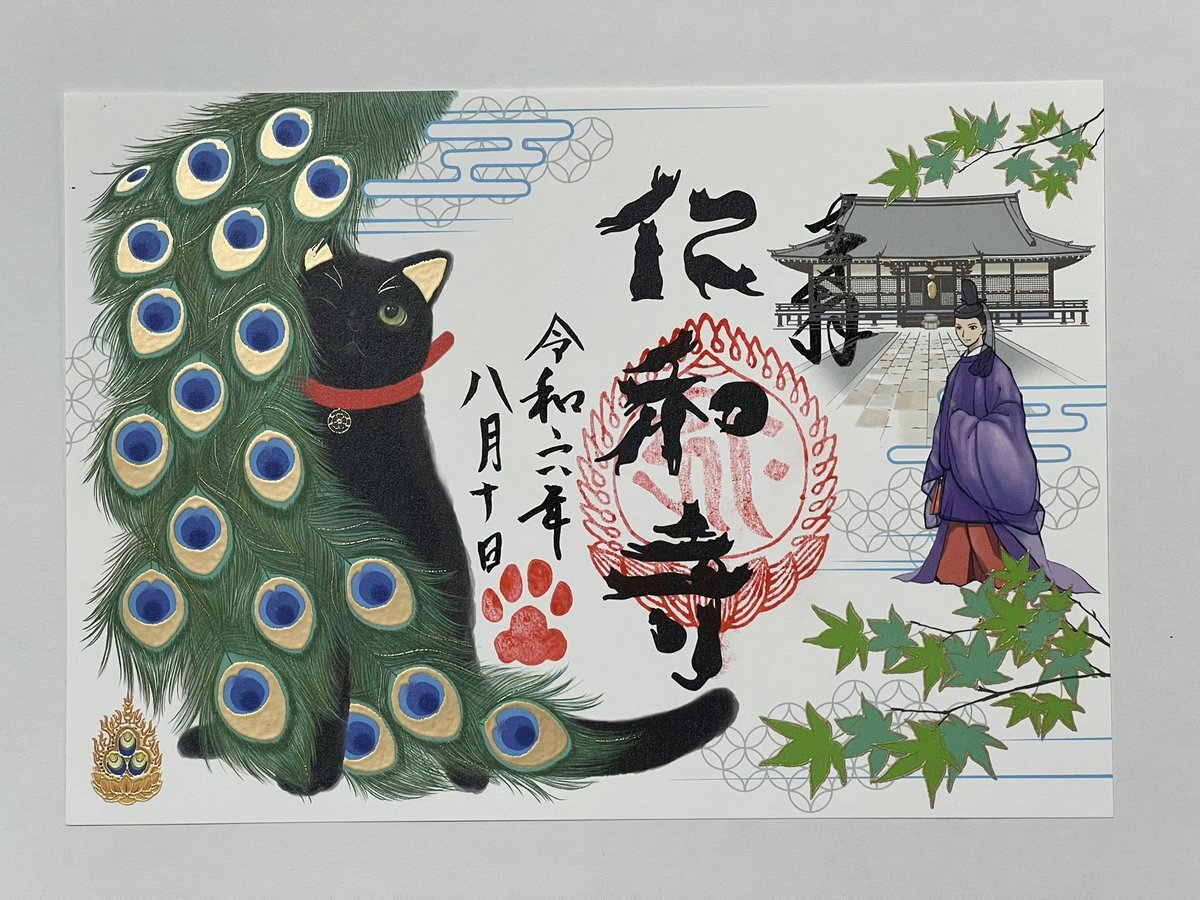 奉拝
仁和寺
令和六年
八月十日